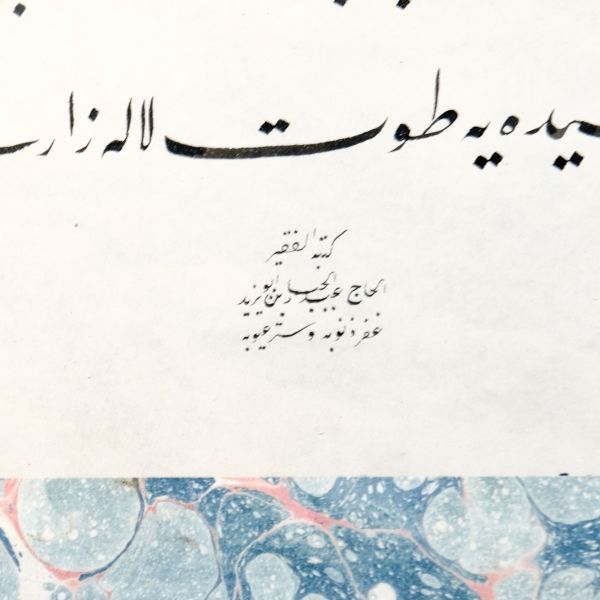 یده یه طوت لاله زار
كتبه الفقير
الحاج عبد الجبار بن ابو يزيد
غفر ذنوبه وستر عيوبه